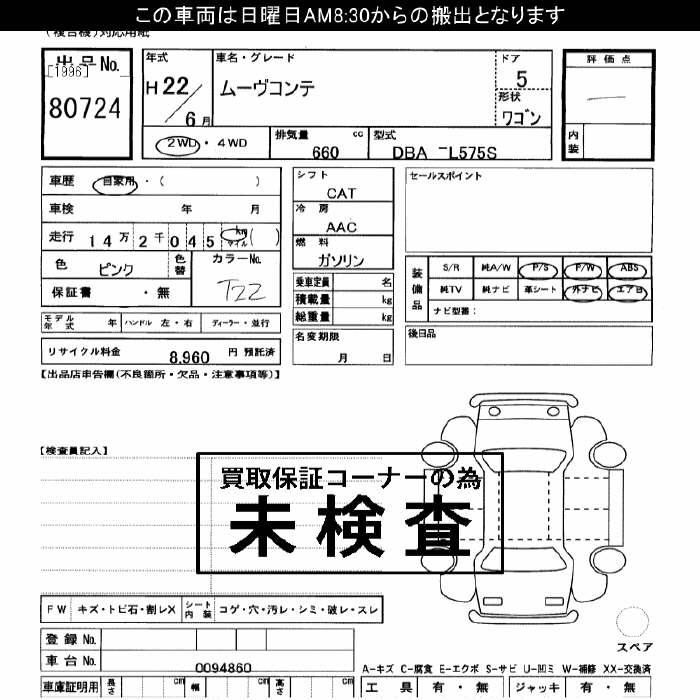 この車両は日曜日AM8:30からの搬出となります
(複合機)対応用紙
出品No.
[1996]
80724
年式
H22/6月
車名・グレード
ムーヴコンテ
ドア
5
形状
ワゴン
評価点
内装
2WD・4WD
排気量
660
cc
型式
DBA -L575S
車歴
自家用・( )
車検 年 月
走行
14万2千045 km マイル ( )
色
ピンク
色替
カラーNo.
T22
保証書 ・無
シフト
CAT
冷房
AAC
燃料
ガソリン
乗車定員 名
積載量 kg
総重量 kg
セールスポイント
装備品
S/R 純A/W P/S P/W ABS
純TV 純ナビ 革シート 外ナビ エアB
ナビ型番:
モデル年式 年 ハンドル 左・右 ディーラー・並行
リサイクル料金
8,960 円 預託済
名変期限
月 日
後日品
【出品店申告欄(不良箇所・欠品・注意事項等)】
【検査員記入】
買取保証コーナーの為
未検査
FW キズ・トビ石・割レX シート内装 コゲ・穴・汚レ・シミ・破レ・スレ
登録No.
車台No.
0094860
スペア
A-キズ C-腐食 E-エクボ S-サビ U-凹ミ W-補修 XX-交換済
車庫証明用 長さ cm 幅 cm 高さ cm
工具 有・無 ジャッキ 有・無